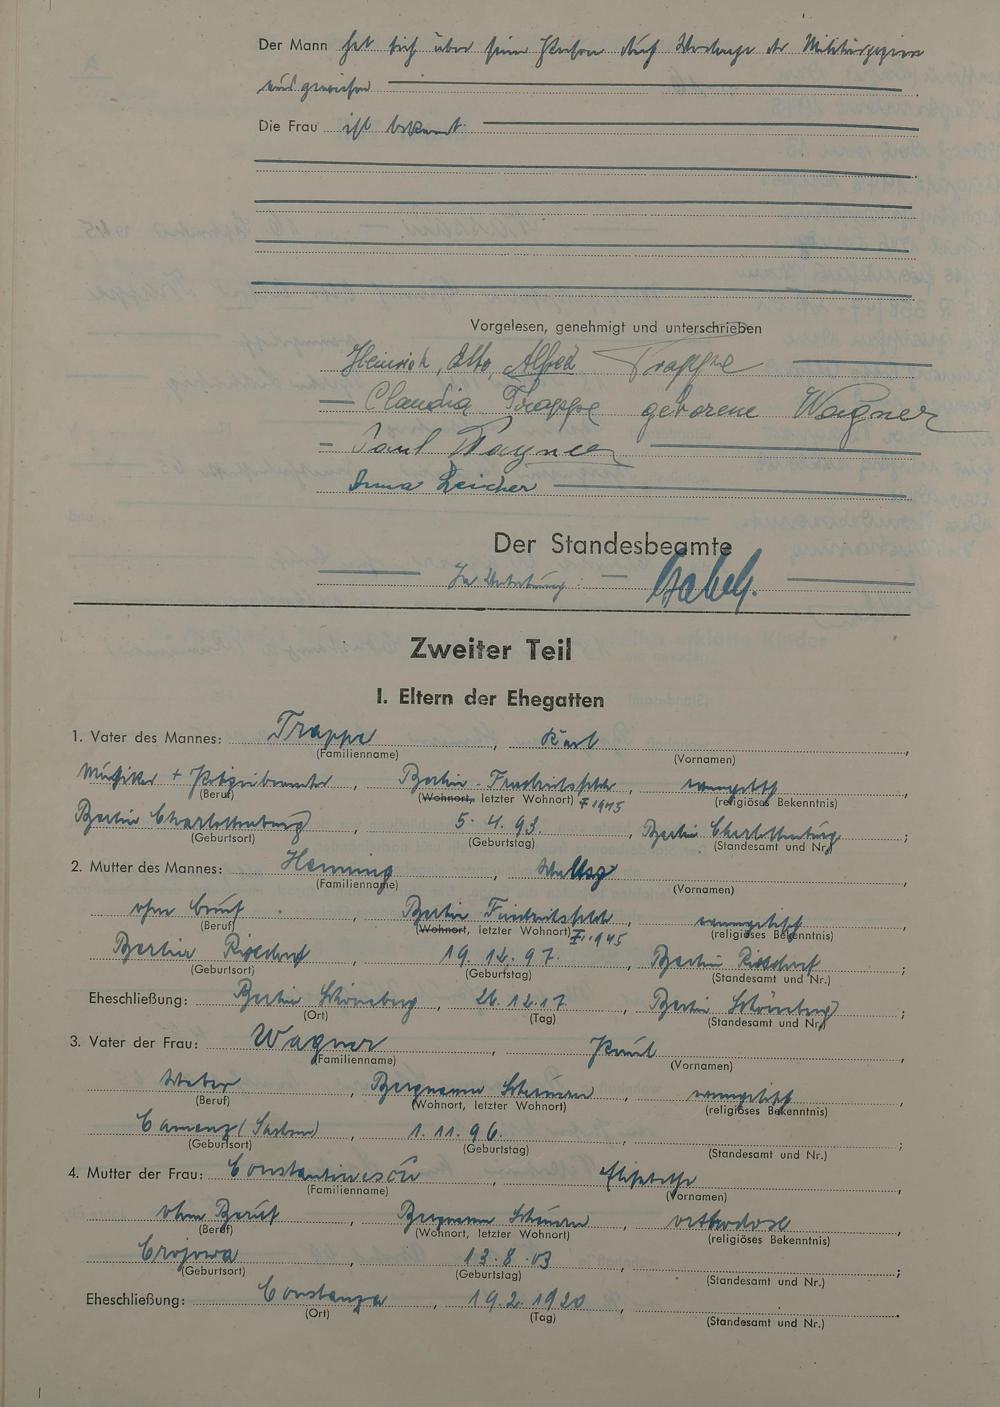 Der Mann hat sich über seine Person durch Vorlage der Militärpapiere
ausgewiesen
Die Frau ist bekannt.
Vorgelesen, genehmigt und unterschrieben
Heinrich, Otto, Alfred Trappe
Claudia Trappe geborene Wagner
Paul Wagner
Irma Leicher
Der Standesbeamte
In Vertretung:
Zweiter Teil
I. Eltern der Ehegatten
1. Vater des Mannes: Trappe, Karl
(Familienname) (Vornamen)
Musiker + Polizeibeamter, Berlin-Friedrichsfelde, evangelisch
(Beruf) (Wohnort, letzter Wohnort) 1945 (religiöses Bekenntnis)
Berlin Charlottenburg, 5. 4. 93., Berlin Charlottenburg;
(Geburtsort) (Geburtstag) (Standesamt und Nr.)
2. Mutter des Mannes: Henning,
(Familienname) (Vornamen)
ohne Beruf, Berlin Friedrichsfelde, evangelisch
(Beruf) (Wohnort, letzter Wohnort) 1945 (religiöses Bekenntnis)
Berlin Rixdorf, 19. 12. 97., Berlin Rixdorf;
(Geburtsort) (Geburtstag) (Standesamt und Nr.)
Eheschließung: Berlin Schöneberg, 26. 12. 17., Berlin Schöneberg;
(Ort) (Tag) (Standesamt und Nr.)
3. Vater der Frau: Wagner, Paul,
(Familienname) (Vornamen)
Weber, Bergmann Scheuern, evangelisch,
(Beruf) (Wohnort, letzter Wohnort) (religiöses Bekenntnis)
Camenz (Sachsen), 1. 11. 96.,;
(Geburtsort) (Geburtstag) (Standesamt und Nr.)
4. Mutter der Frau: Constantinescu, Elisabeth,
(Familienname) (Vornamen)
ohne Beruf, Bergmann Scheuern, orthodox,
(Beruf) (Wohnort, letzter Wohnort) (religiöses Bekenntnis)
Crajowa, 13. 8. 03,;
(Geburtsort) (Geburtstag) (Standesamt und Nr.)
Eheschließung: Constanza, 19. 2. 1920,
(Ort) (Tag) (Standesamt und Nr.)